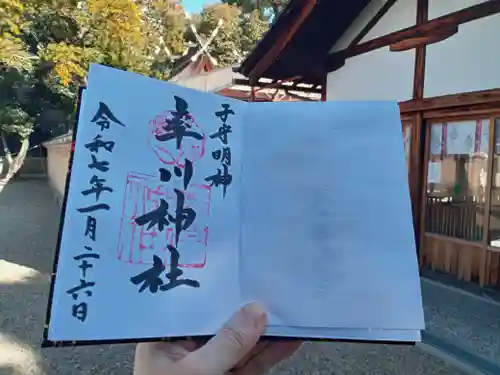 子守明神
率川神社
令和七年一月二十六日